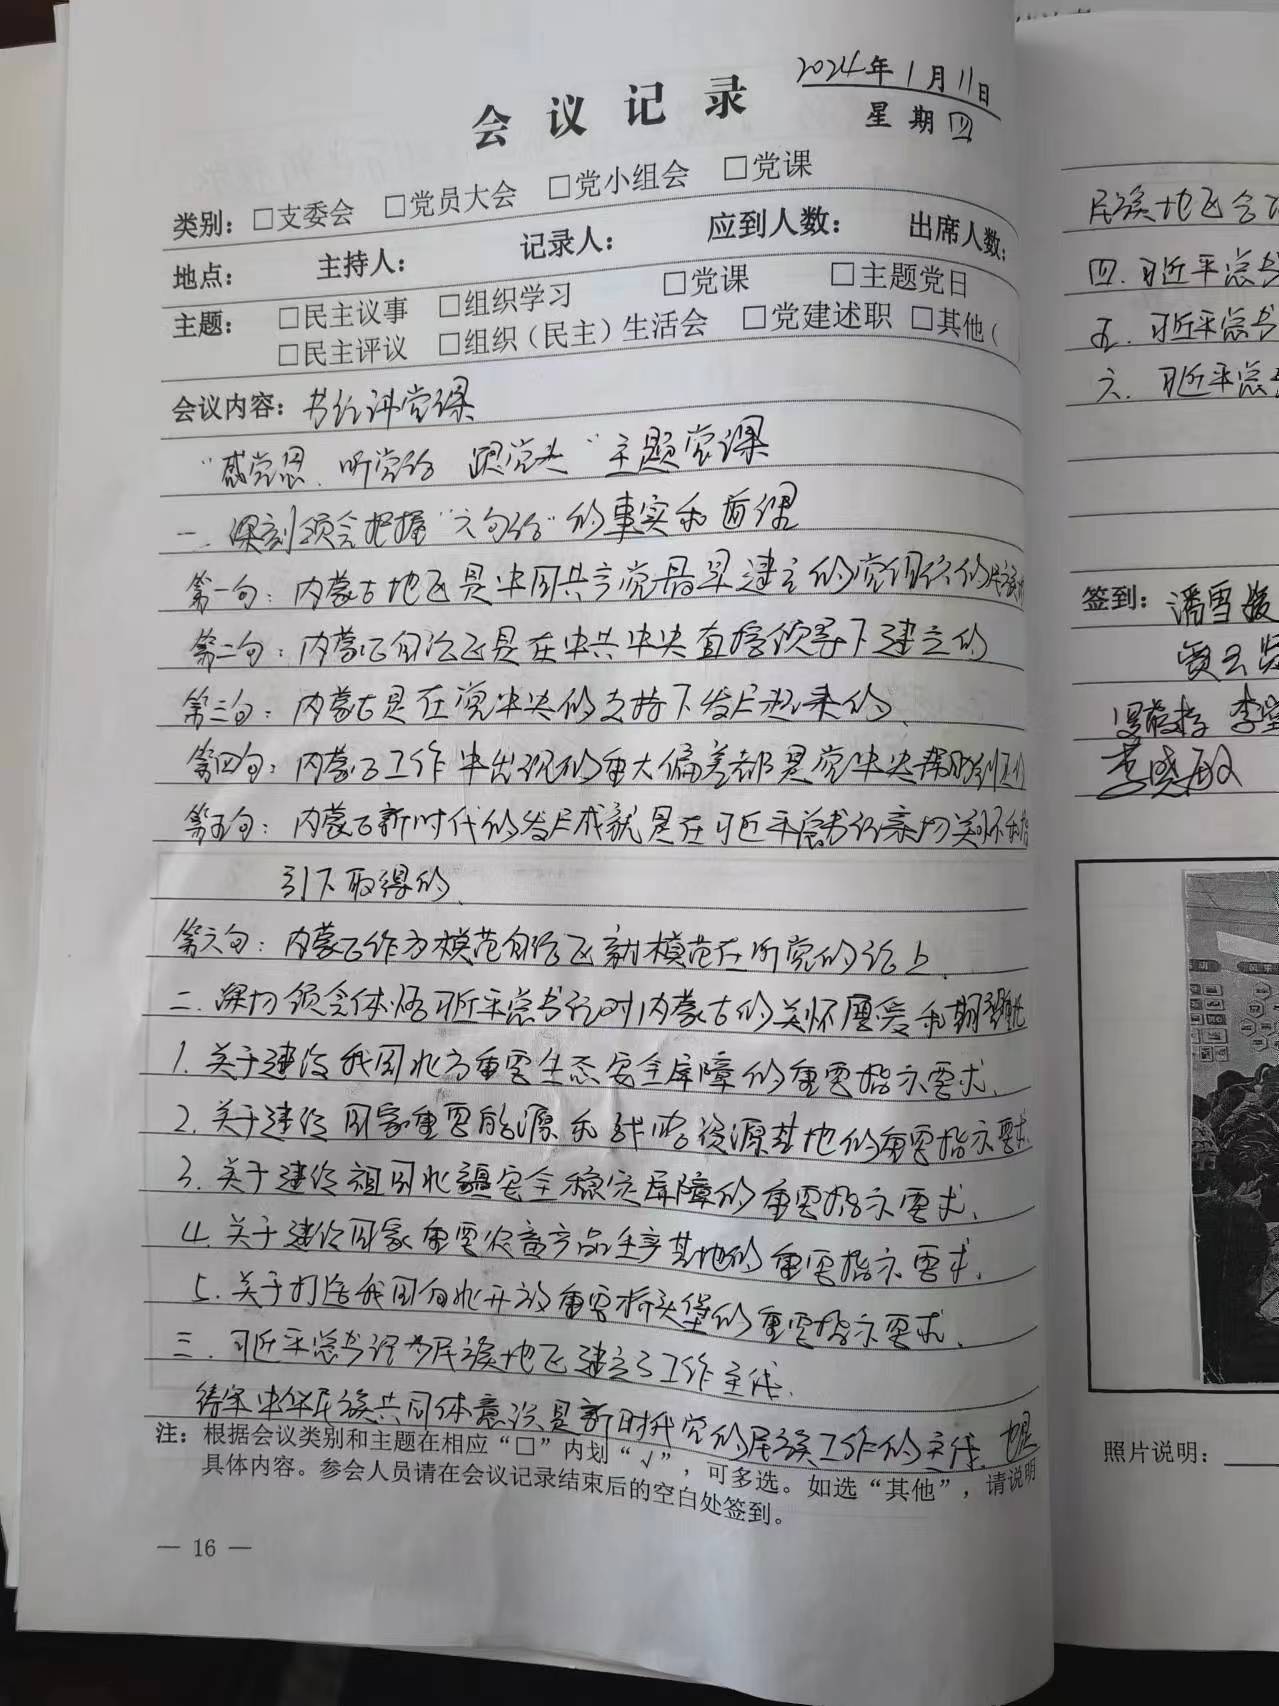 2024年1月11日
会议记录
星期四
类别：□支委会 □党员大会 □党小组会 □党课
地点： 主持人： 记录人： 应到人数： 出席人数：
主题： □民主议事 □组织学习 □党课 □主题党日
□民主评议 □组织（民主）生活会 □党建述职 □其他（
会议内容：书记讲党课
“感党恩、听党话 跟党走”主题党课
一．深刻领会把握“六句话”的事实和道理
第一句：内蒙古地区是中国共产党最早建立的党组织的民族
第二句：内蒙古自治区是在中共中央直接领导下建立的
第三句：内蒙古是在党中央的支持下发展起来的、
第四句：内蒙古工作中出现的重大偏差都是党中央帮助纠正的
第五句：内蒙古新时代的发展成就是在习近平总书记亲切关怀和指
引下取得的、
第六句：内蒙古作为模范自治区就模范在听党的话上、
二．深切领会体悟习近平总书记对内蒙古的关怀厚爱和期望重托
1. 关于建设我国北方重要生态安全屏障的重要指示要求、
2. 关于建设国家重要能源和战略资源基地的重要指示要求
3. 关于建设祖国北疆安全稳定屏障的重要指示要求、
4. 关于建设国家重要农畜产品生产基地的重要指示要求、
5. 关于打造我国向北开放重要桥头堡的重要指示要求、
三．习近平总书记为民族地区建立了工作主线、
铸牢中华民族共同体意识是新时代党的民族工作的主线、也是
注：根据会议类别和主题在相应“□”内划“√”，可多选。如选“其他”，请说明
具体内容。参会人员请在会议记录结束后的空白处签到。
— 16 —
民族地区
四．习近平总书
五．习近平总书
六．习近平总
签到：潘雪媛
贾云
李
黄晓敏
照片说明：